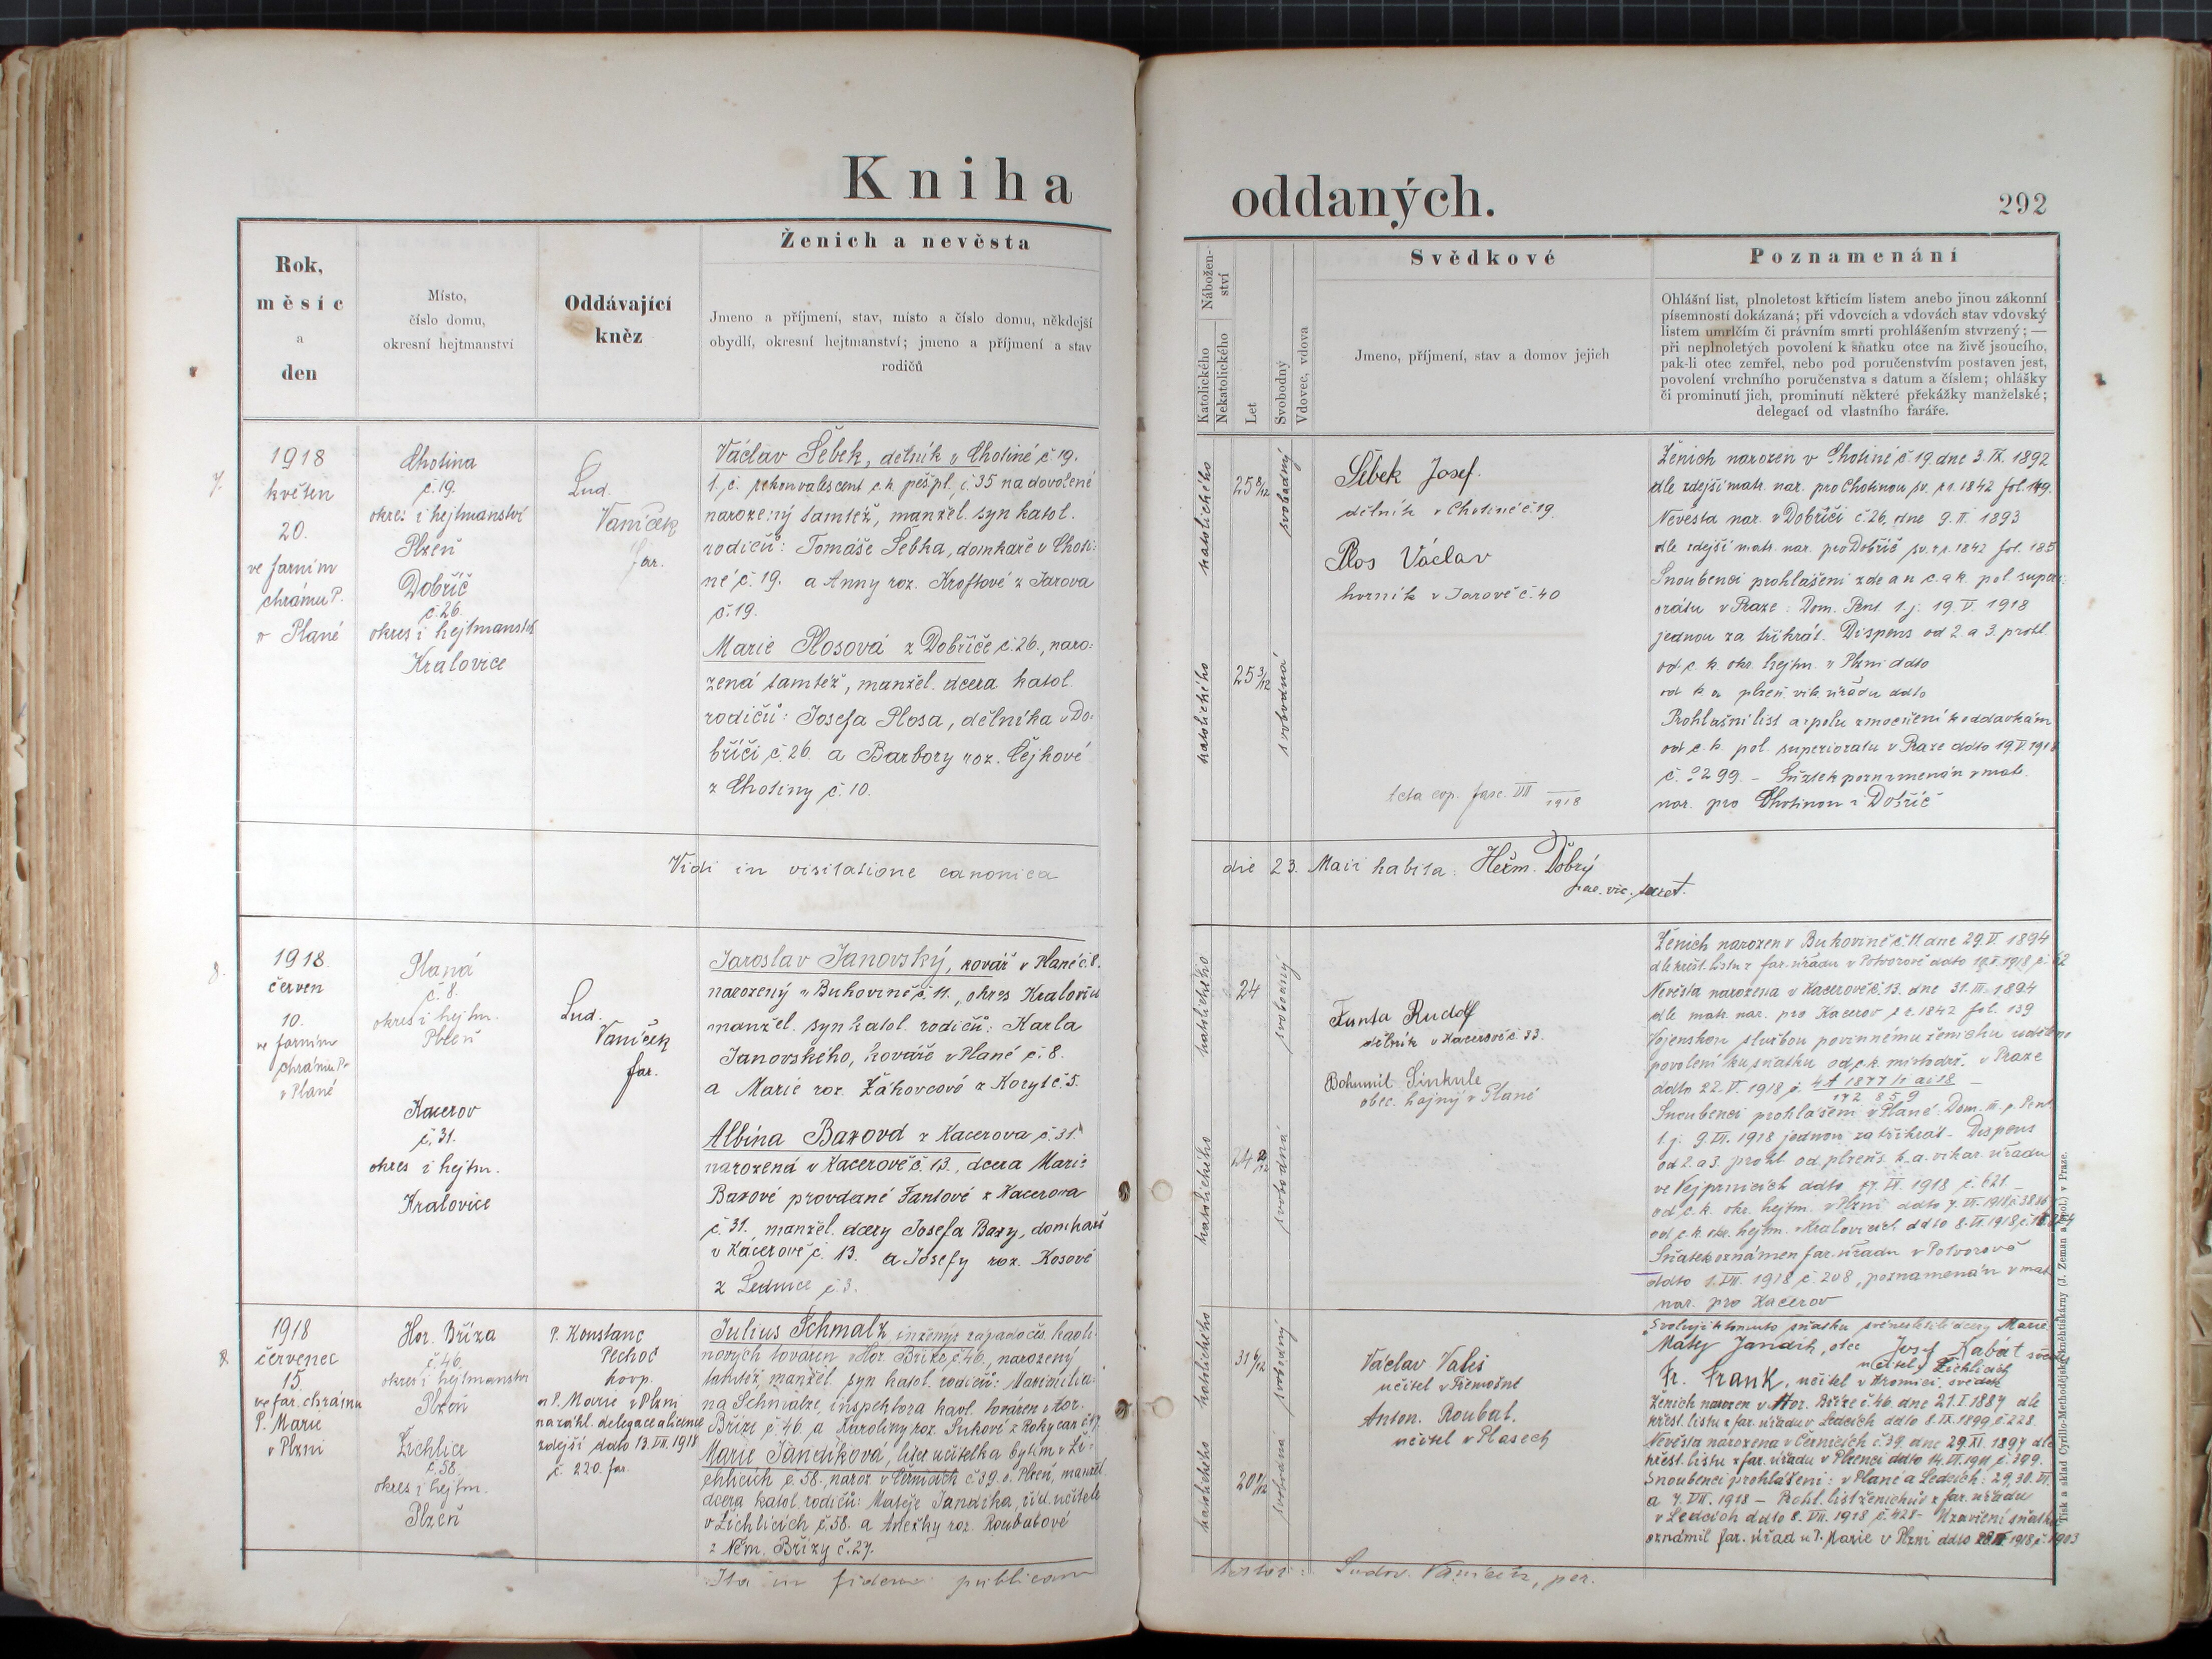 Kniha
oddaných.
292
Rok,
měsíc
a
den
Místo,
číslo domu,
okresní hejtmanství
Oddávající
kněz
Ženich a nevěsta
Jmeno a příjmení, stav, místo a číslo domu, někdejší
obydlí, okresní hejtmanství; jmeno a příjmení a stav
rodičů
Nábožen-
ství
Katolického
Nekatolického
Let
Svobodný
Vdovec, vdova
Svědkové
Jmeno, příjmení, stav a domov jejich
Poznamenání
Ohlášní list, plnoletost křticím listem anebo jinou zákonní
písemností dokázaná; při vdovcích a vdovách stav vdovský
listem umrlčím či právním smrti prohlášením stvrzený; —
při neplnoletých povolení k sňatku otce na živě jsoucího,
pak-li otec zemřel, nebo pod poručenstvím postaven jest,
povolení vrchního poručenstva s datum a číslem; ohlášky
či prominutí jich, prominutí některé překážky manželské;
delegací od vlastního faráře.
7.
1918
květen
20.
ve farním
chrámu P.
v Plané
Chotina
č. 19.
okres i hejtmanství
Plzeň
Dobříč
č. 26.
okres i hejtmanství
Kralovice
Lud.
Vaníček
far.
Václav Šebek, dělník v Chotině č. 19.
t. č. rekonvalescent c. k. pěš. pl. č. 35 na dovolené
narozený tamtéž, manžel. syn katol.
rodičů: Tomáše Šebka, domkaře v Choti-
né č. 19. a Anny roz. Kroftové z Jarova
č. 19.
Marie Plosová z Dobříče č. 26., naro-
zená tamtéž, manžel. dcera katol.
rodičů: Josefa Plosa, dělníka v Do-
bříči č. 26 a Barbory roz. Čejkové
z Chotiny č. 10.
katolického
25 8/12
svobodný
katolického
25 3/12
svobodná
Šebek Josef.
dělník v Chotině č. 19.
Plos Václav
horník v Jarově č. 40
acta cop. fasc. VII 1918
Ženich narozen v Chotině č. 19. dne 3. IX. 1892
dle zdejší matr. nar. pro Chotinou sv. z r. 1842 fol. 149.
Nevěsta nar. v Dobříči č. 26. dne 9. II. 1893
dle zdejší matr. nar. pro Dobříč sv. z r. 1842 fol. 185
Snoubenci prohlášeni zde a n c. a k. pol. superi-
orátu v Praze: Dom. Pent. t. j. 19. V. 1918
jednou za třikrát. Dispens od 2. a 3. prohl.
od c. k. okr. hejtm. v Plzni ddto
od k a plzeň. vik. úřadu ddto
Prohlašní list a spolu zmocnění k oddavkám
od c. k. pol. superiorátu v Praze ddto 19. V. 1918
č. 299. – Sňatek poznamenán v mat.
nar. pro Chotinou i Dobříč
Vidi in visitatione canonica
die 23. Maii habita: Heřm. Dobrý
vic. secret.
8.
1918
červen
10.
ve farním
chrámu P.
v Plané
Planá
č. 8.
okres i hejtm.
Plzeň
Kacerov
č. 31.
okres i hejtm.
Kralovice
Lud.
Vaníček
far.
Jaroslav Janovský, kovář v Plané č. 8.
narozený v Bukovině č. 11., okres Kralovice
manžel. syn katol. rodičů: Karla
Janovského, kováře v Plané č. 8.
a Marie roz. Žáhovcové z Koryt č. 5.
Albína Baxová z Kacerova č. 31.
narozená v Kacerově č. 13., dcera Marie
Baxové provdané Fantové z Kacerova
č. 31., manžel. dcery Josefa Baxy, domkaře
v Kacerově č. 13. a Josefy roz. Kosové
z Lednice č. 3.
katolického
24
svobodný
katolického
24 2/12
svobodná
Fanta Rudolf
dělník v Kacerově č. 33.
Bohumil Šinkule
obec. hajný v Plané
Ženich narozen v Bukovině č. 11 dne 29. V. 1894
dle křest. listu z far. úřadu v Potvorově ddto
Nevěsta narozena v Kacerově č. 13. dne 31. III. 1894
dle matr. nar. pro Kacerov z r. 1842 fol. 139
Vojenskou službou povinnému ženichu uděleno
povolení ku sňatku od c. k. místodrž. v Praze
ddto 22. V. 1918 č.
Snoubenci prohlášeni v Plané: Dom. III. p. Pent.
t. j. 9. VI. 1918 jednou za třikrát – Dispens
od 2. a 3. prohl. od plzeňs. k. a. vikar. úřadu
ve Vejprnicích ddto 7. VI. 1918 č. 621. –
od c. k. okr. hejtm. v Plzni ddto 7. VI. 1918
od c. k. okr. hejtm. v Kralovicích ddto 8. VI. 1918
Sňatek oznámen far. úřadu v Potvorově
ddto 1. VII. 1918 č. 208, poznamenán v mat.
nar. pro Kacerov
1918
červenec
15.
ve far. chrámu
P. Marie
v Plzni
Hor. Bříza
č. 46.
okres i hejtmanství
Plzeň
Žichlice
č. 58.
okres i hejtm.
Plzeň
P. Konstanc
Pechoč
koop.
u P. Marie v Plzni
na zákl. delegace a licence
zdejší ddto 13. VII. 1918
č. 220. far.
Julius Schmalz inženýr západočes. kaoli-
nových továren v Hor. Bříze č. 46., narozený
tamtéž, manžel. syn katol. rodičů: Maximilia-
na Schmalze, inspektora kaol. továren v Hor.
Bříze č. 46. a Karoliny roz. Sukové z Rokycan
Marie Jandíková, liter. učitelka bytem v Ži-
chlicích č. 58., naroz. v Černicích č. 39. o. Plzeň, manžel.
dcera katol. rodičů: Matěje Jandíka, říd. učitele
v Žichlicích č. 58. a Anežky roz. Roubalové
z Něm. Břízy č. 27.
katolického
31 6/12
svobodný
katolického
svobodná
Václav Valeš
učitel v Třemošné
Anton. Roubal.
učitel v Plasech
Svoluji k tomuto sňatku své nezletilé dcery Marie.
Matěj Jandík, otec Josef Kabát
učitel v Žichlicích
Fr. Frank, učitel v Hromici, svědek
Ženich narozen v Hor. Bříze č. 46. dne 21. I. 1887 dle
křest. listu z far. úřadu v Ledcích ddto 8. IX. 1899, č. 228.
Nevěsta narozena v Černicích č. 39. dne 29. XI. 1897 dle
křest. listu z far. úřadu v Plzenci ddto
Snoubenci prohlášeni: v Plané a Ledcích: 29, 30. VI.
a 7. VII. 1918 – Prohl. list ženichův z far. úřadu
v Ledcích ddto 8. VII. 1918 č. 428 – Uzavření sňatku
oznámil far. úřad u P. Marie v Plzni ddto
Ita in fidem publicam
testor: Ludov. Vaníček, par.
Tisk a sklad Cyrillo-Methodějské knihtiskárny (J. Zeman a spol.) v Praze.